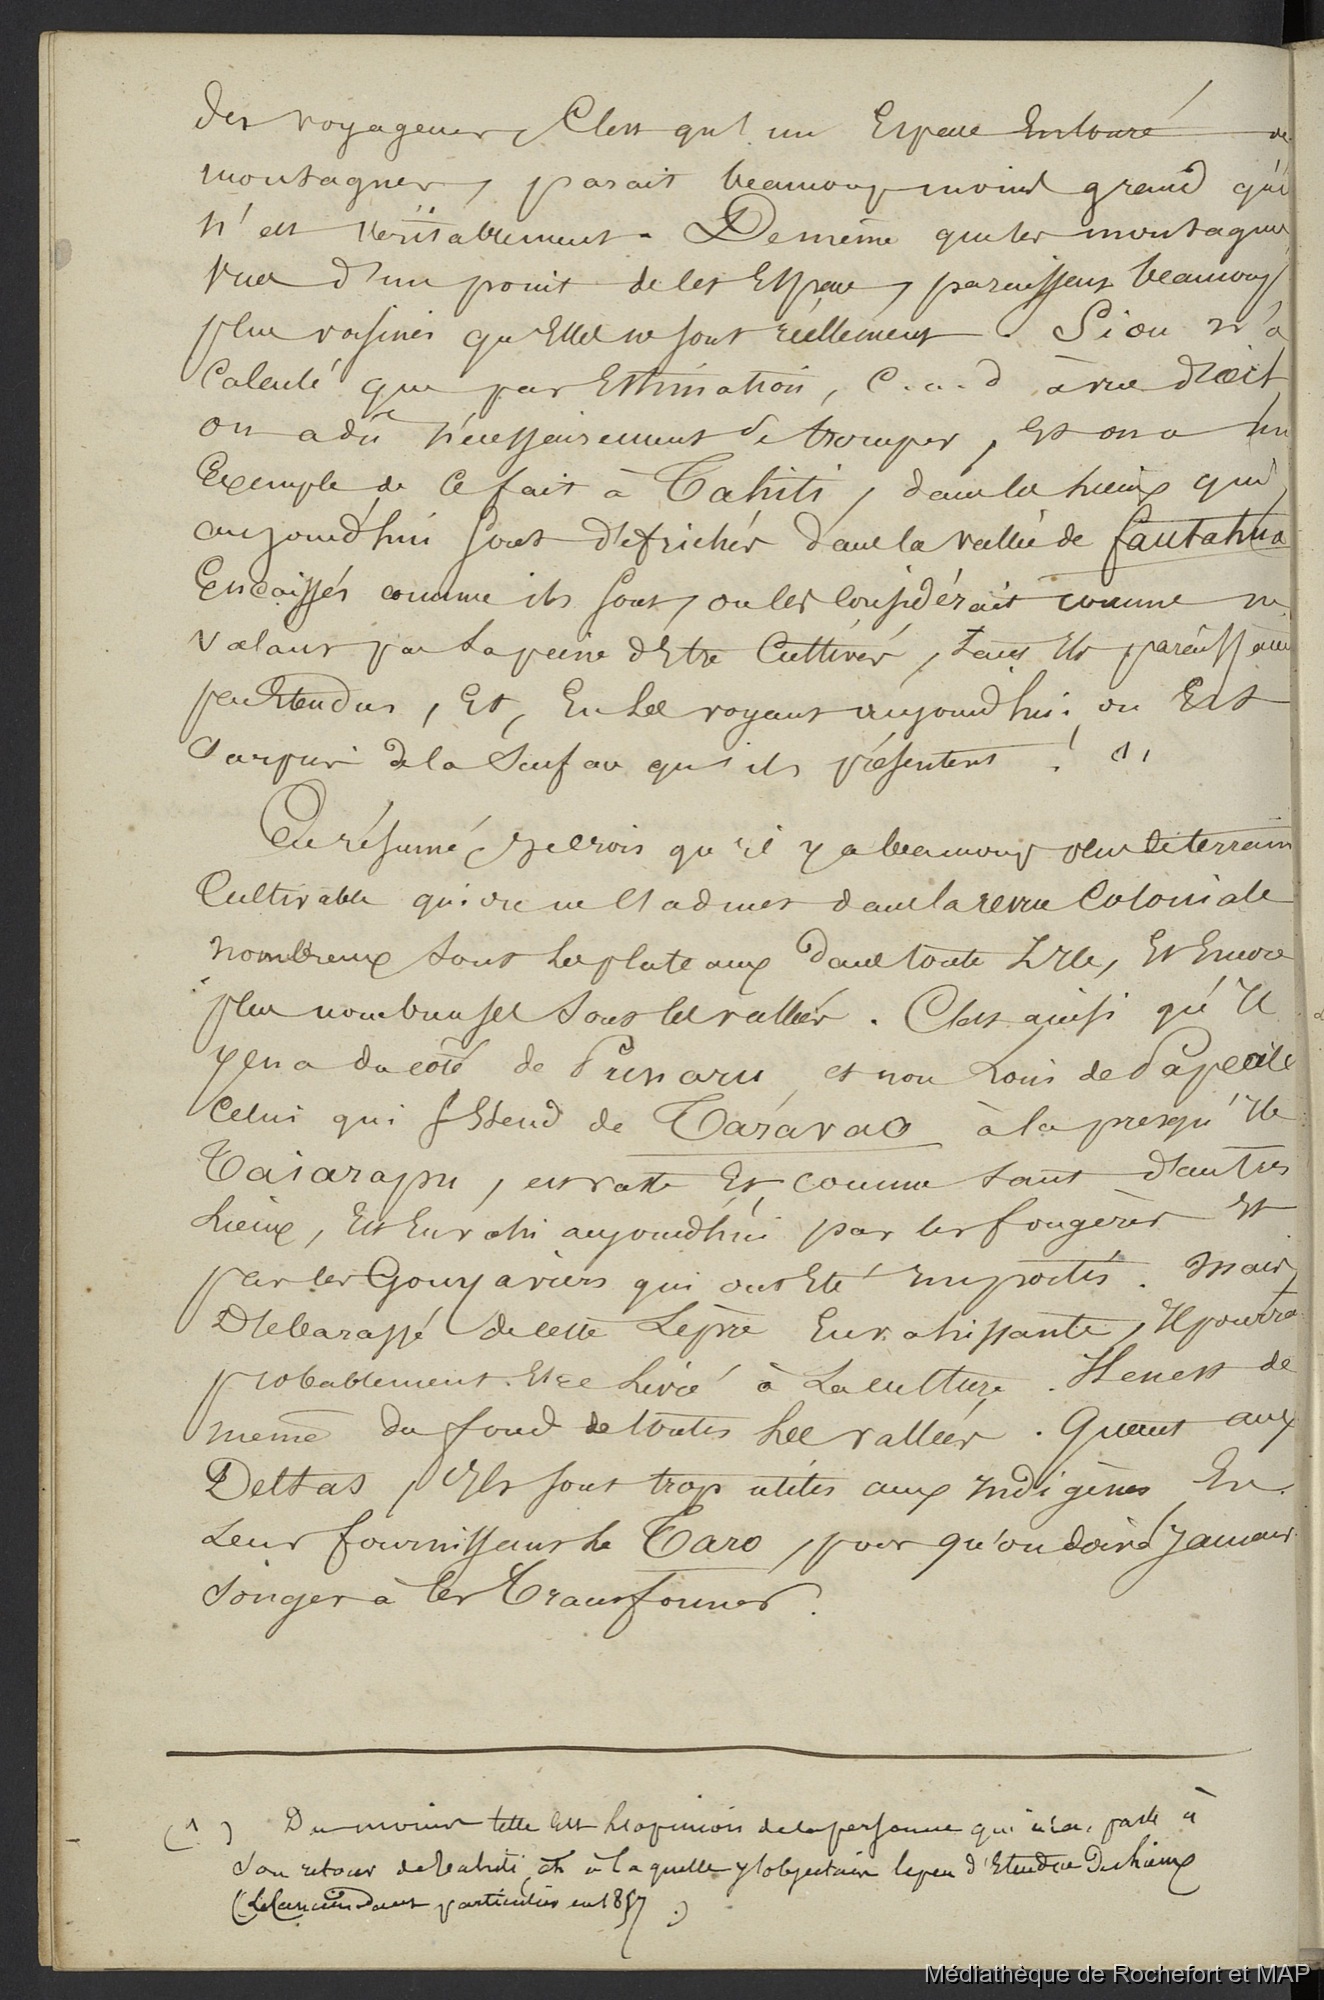 des voyageurs, C'est qu'un Espace Entouré de
montagnes, parait beaucoup moins grand qu'il
n'est véritablement. De même que les montagnes
vues d'un point de cet Espace, paraissent beaucoup
plus voisines qu'Elles ne sont réellement. Si on n'a
Calculé que par Estimation, C.a.d à vue d'œil,
on a dû nécessairement se tromper, Et on a un
Exemple de ce fait à Tahiti, dans les Lieux qui,
aujourd'hui sont défrichés dans la vallée de fautahua
Encaissés comme ils sont, on les considérait comme ne
valant pas la peine d'Etre Cultivés, tant Ils paraissaient
peu Etendus, Et, En Les voyant aujourd'hui on Est
surpris de la surface qu'ils présentent ! (1)
En résumé, Je crois qu'il y a beaucoup plus de terrain
Cultivable qu'on ne l'admet dans la revue Coloniale
nombreux sont Les plateaux dans toute L'Ile, Et Encore
plus nombreuses sont les vallées. C'est ainsi qu'Il
y en a du côté de Punaru, et non Loin de Papeete
Celui qui s'Etend de Taravao à la presqu'Ile
Taiarapu, est vaste Et comme tant d'autres
Lieux, Est Envahi aujourd'hui par les fougères Et
par les Gouyaviers qui ont Eté importés. Mais,
Débarassé de cette Lèpre Envahissante, Il pourra
probablement Etre Livré à La culture. Il en est de
même du fond de toutes Les vallées. Quant aux
Deltas, Ils sont trop utiles aux indigènes En
Leur fournissant Le Taro, pour qu'on doive Jamais
songer à les Transformer.
(1.) Du moins telle Est L'opinion de la personne qui m'en a parlé à
son retour de Taïti, et à laquelle J'objectais le peu d'Etendue Des Lieux
(Le Commandant particulier en 1857.)
Médiathèque de Rochefort et MAP